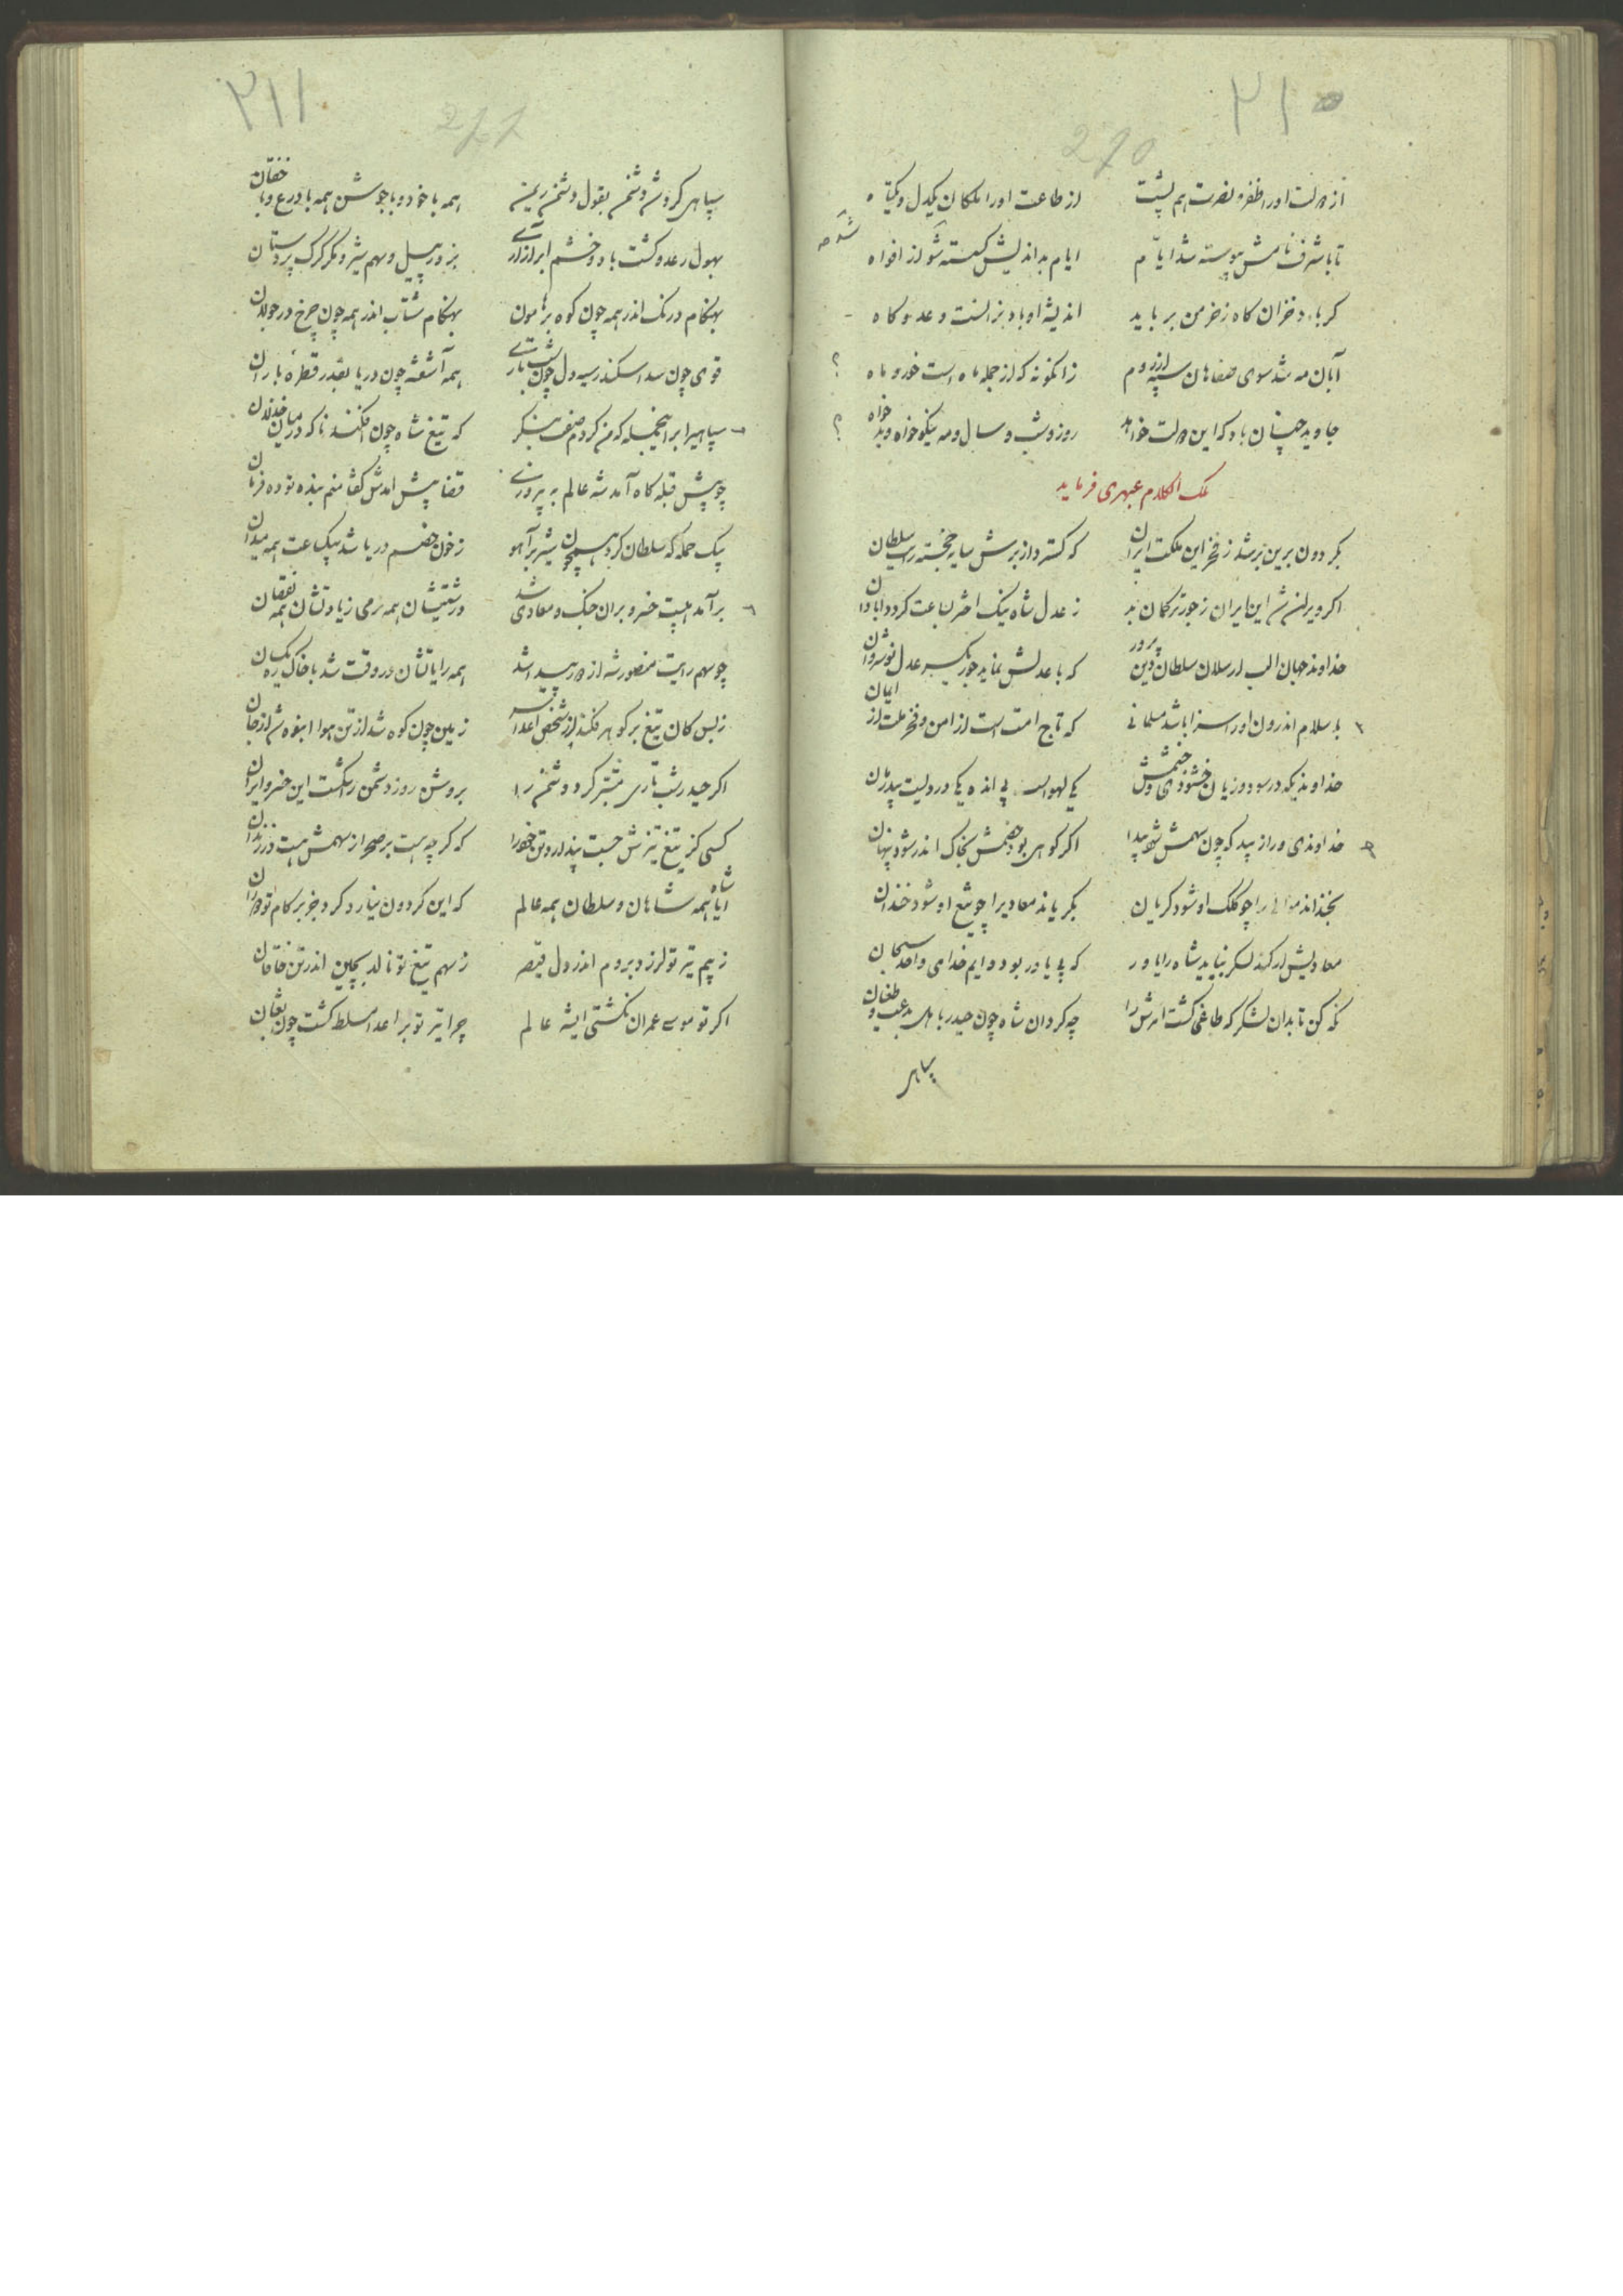 ۲۱۰
270
از دولت او را ظفر و نصرت هم پشت از طاعت او را ملکان یکدل و یکتاه
تا با شرف نامش پیوسته شد ایام ایام بداندیش گسسته شد از افواه
کرباد خزان کاه ز خرمن برباید اندیشه او باد بزانست و عدو کاه
آبان مه شد سوی صفاهان سپه زانگونه که از جمله ماه است خور و ماه
جاوید چنان باد که این دولت خواهد روز و شب و سال و مه نیکوخواه و بدخواه
ملک الکلام عبهری فرماید
بکردون برین برشد ز فخر این ملکت ایران که کسترد از برش سایه خجسته رایت سلطان
اکر ویران شد این ایران ز جور ترکمان بد ز عدل شاه نیک اختر بساعت کردد آبادان
خداوند جهان الب ارسلان سلطان دین پرور که با عدلش نماید جور یکسر عدل نوشروان
باسلام اندرون او را سزا باشد مسلمانی که تاج امت است از امن و فخر ملت از ایمان
خداوندیکه در سود و زیان خشنودی و خشمش یکی لهواست بی انده یکی دردیست بیدرمان
خداوندی ورا زیبد که چون سهمش شود پیدا اکر کوهی بود خصمش بخاک اندر شود پنهان
بخنداند موالی را چو کلک او شود کریان بکریاند معادیرا چو تیغ او شود خندان
معادیش ار کند لشکر نباید شاه را یاور که بی یاور بود دایم خدای واحد سبحان
نکه کن تا بدان لشکر که طاغی کشت امرش را چه کرد آن شاه چون حیدر باهل بدعت و طغیان
سپاهی
۲۱۱
271
سپاهی کردش دشمن بقول دشمن ریمن همه با خود و با جوشن همه با درع و با خفتان
بهول رعد و کشت باد و خشم ابر آزاری بزور پیل و سهم شیر و مکر کرک پردستان
بهنکام درنک اندر همه چون کوه بر هامون بهنکام شتاب اندر همه چون چرخ در جولان
قوی چون سد اسکندر سیه دل چون شب تاری همه آشفته چون دریا بقدر قطره باران
سپاهیرا بر اینجمله که من کردم صفت بنکر که تیغ شاه چون افکند ناکه در میان خذلان
چو پیش قبله کاه آمد شه عالم به پیروزی قضا پیش آمدش کفتا منم بنده تو ده فرمان
بیک حمله که سلطان کرد همچون شیر بر آهو ز خون خصم دریا شد بیکساعت همه میدان
برآمد هیبت خسرو بران جنک و معادی شد درشتیشان همه نرمی زیادتشان همه نقصان
چو سهم رایت منصور شه از دور پیدا شد همه رایاتشان در وقت شد با خاک ره یکسان
ز بس کان تیغ بر کوهر فکند از شخص اعدا سر زمین چون کوه شد از تن هوا انبوه شد از جان
اکر حیدر شب تاری مقشر کرد دشمن را بروشن روز دشمن را بکشت این خسرو ایران
کسی کز تیغ تیزش جست پندارد و تن خود را که کر چه هست بر صحرا ز سهمش هست در زندان
ایا شاه همه شاهان و سلطان همه عالم که این کردون نیارد کرد جز بر کام تو دوران
ز بیم تیر تو لرزد بروم اندر دل قیصر ز سهم تیغ تو نالد بچین اندر تن خاقان
اکر تو موسی عمران نکشتی ای شه عالم چرا تیر تو بر اعدا مسلط کشت چون ثعبان